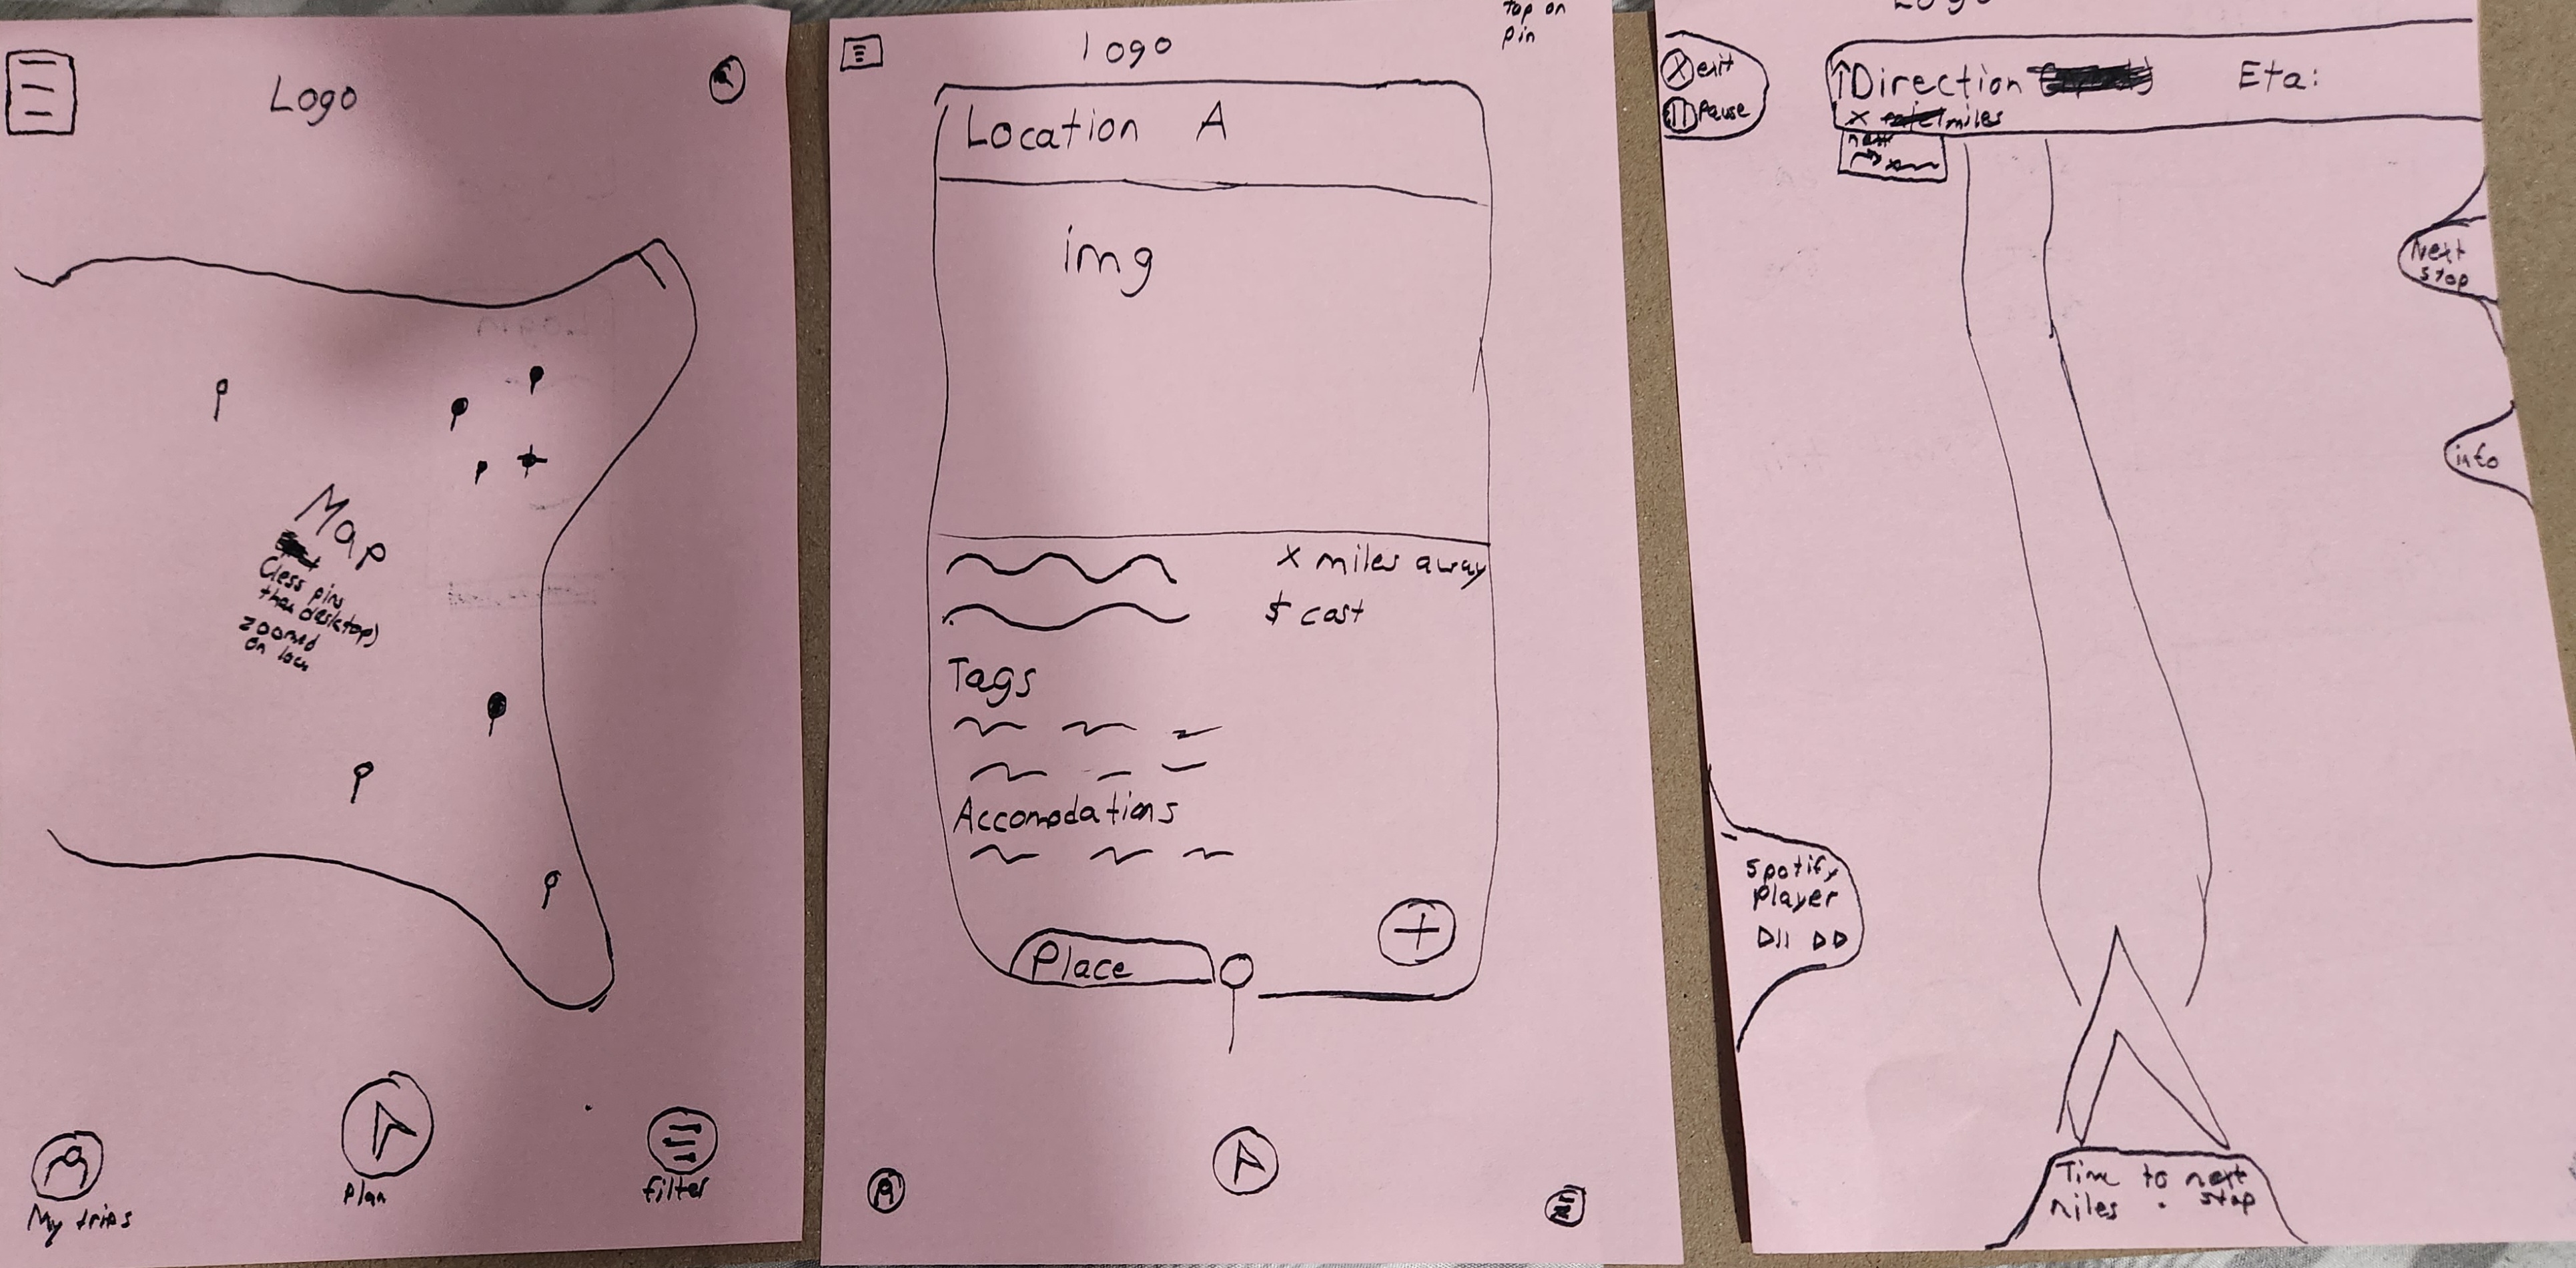 Logo
Map
(less pins
than desktop)
zoomed
on loca
My trips
Plan
filter
logo
tap on
pin
Location A
img
x miles away
$ cost
Tags
Accomodations
Place
Logo
exit
Pause
Direction
Eta:
x miles
next
Next
stop
info
Spotify
Player
Time to next
miles stop